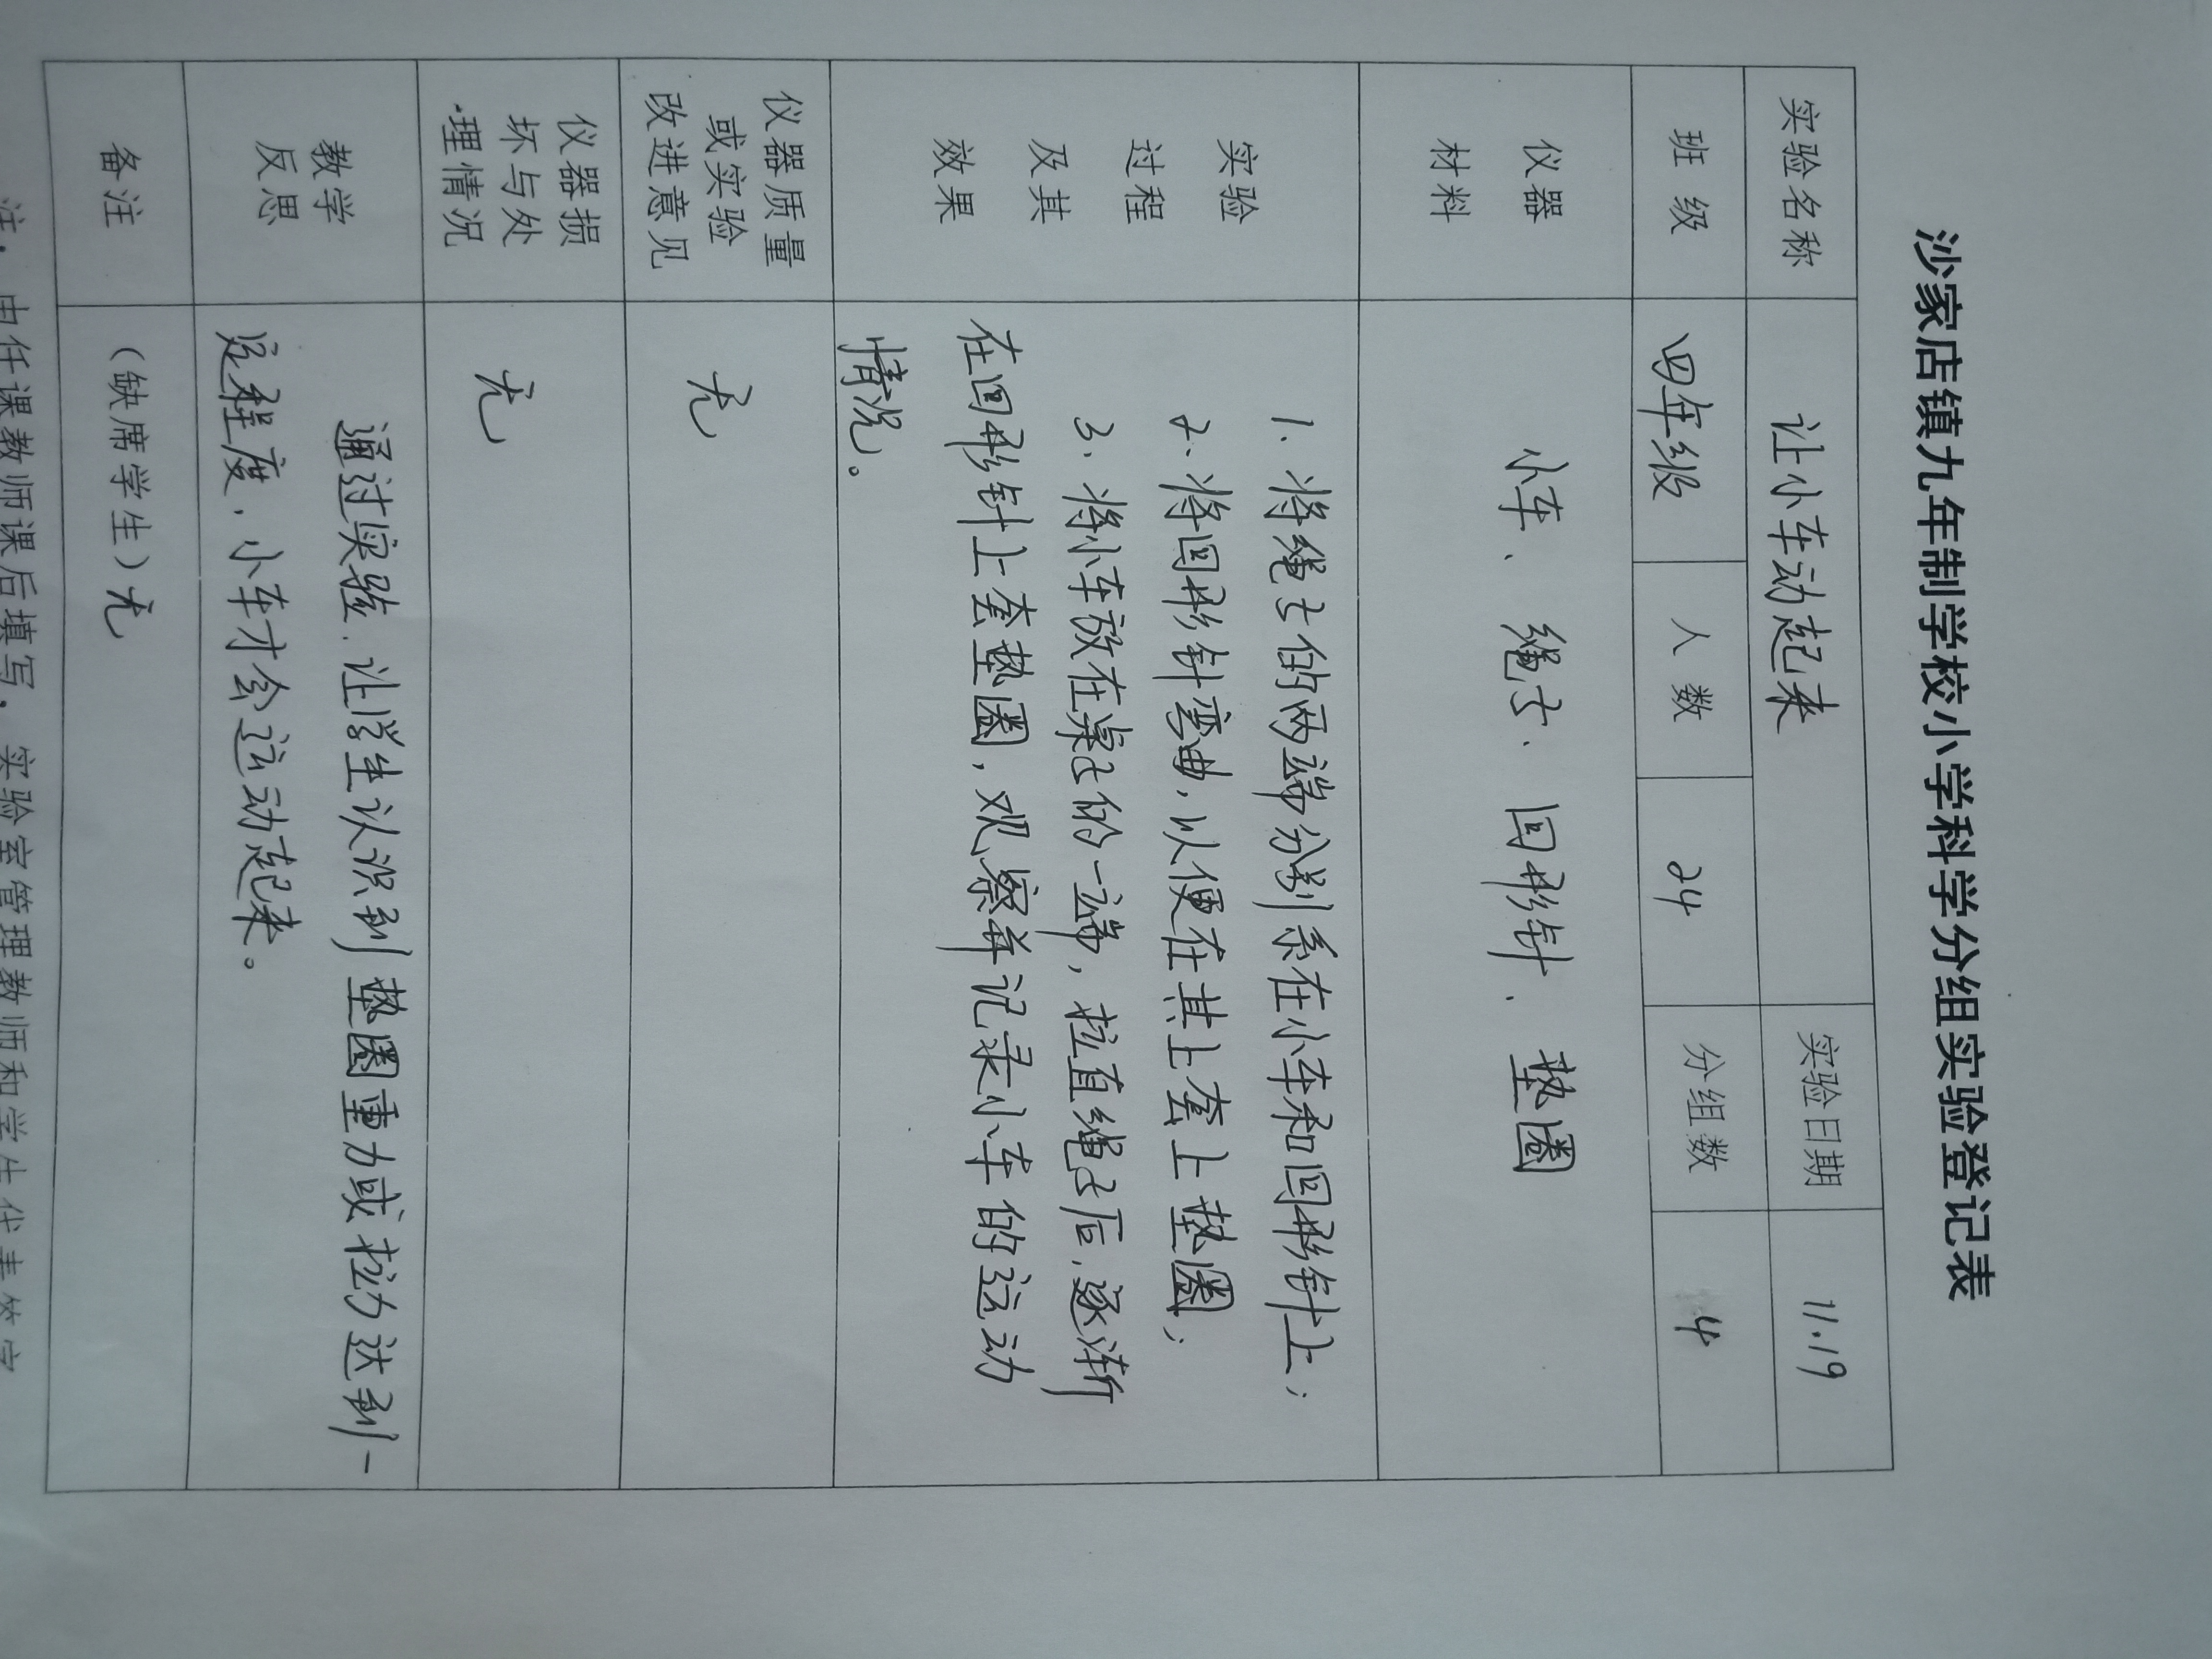 沙家店镇九年制学校小学科学分组实验登记表
实验名称 让小车动起来 实验日期 11.19
班 级 四年级 人 数 24 分组数 4
仪器
材料
小车、绳子、回形针、垫圈
实验
过程
及其
效果
1、将绳子的两端分别系在小车和回形针上;
2、将回形针弯曲,以便在其上套上垫圈;
3、将小车放在桌子的一端,拉直绳子后,逐渐
在回形针上套垫圈,观察并记录小车的运动
情况。
仪器质量
或实验
改进意见
无
仪器损
坏与处
理情况
无
教学
反思
通过实验,让学生认识到垫圈重力或拉力达到一
定程度,小车才会运动起来。
备注 (缺席学生)无
注:由任课教师课后填写,实验室管理教师和学生代表签字